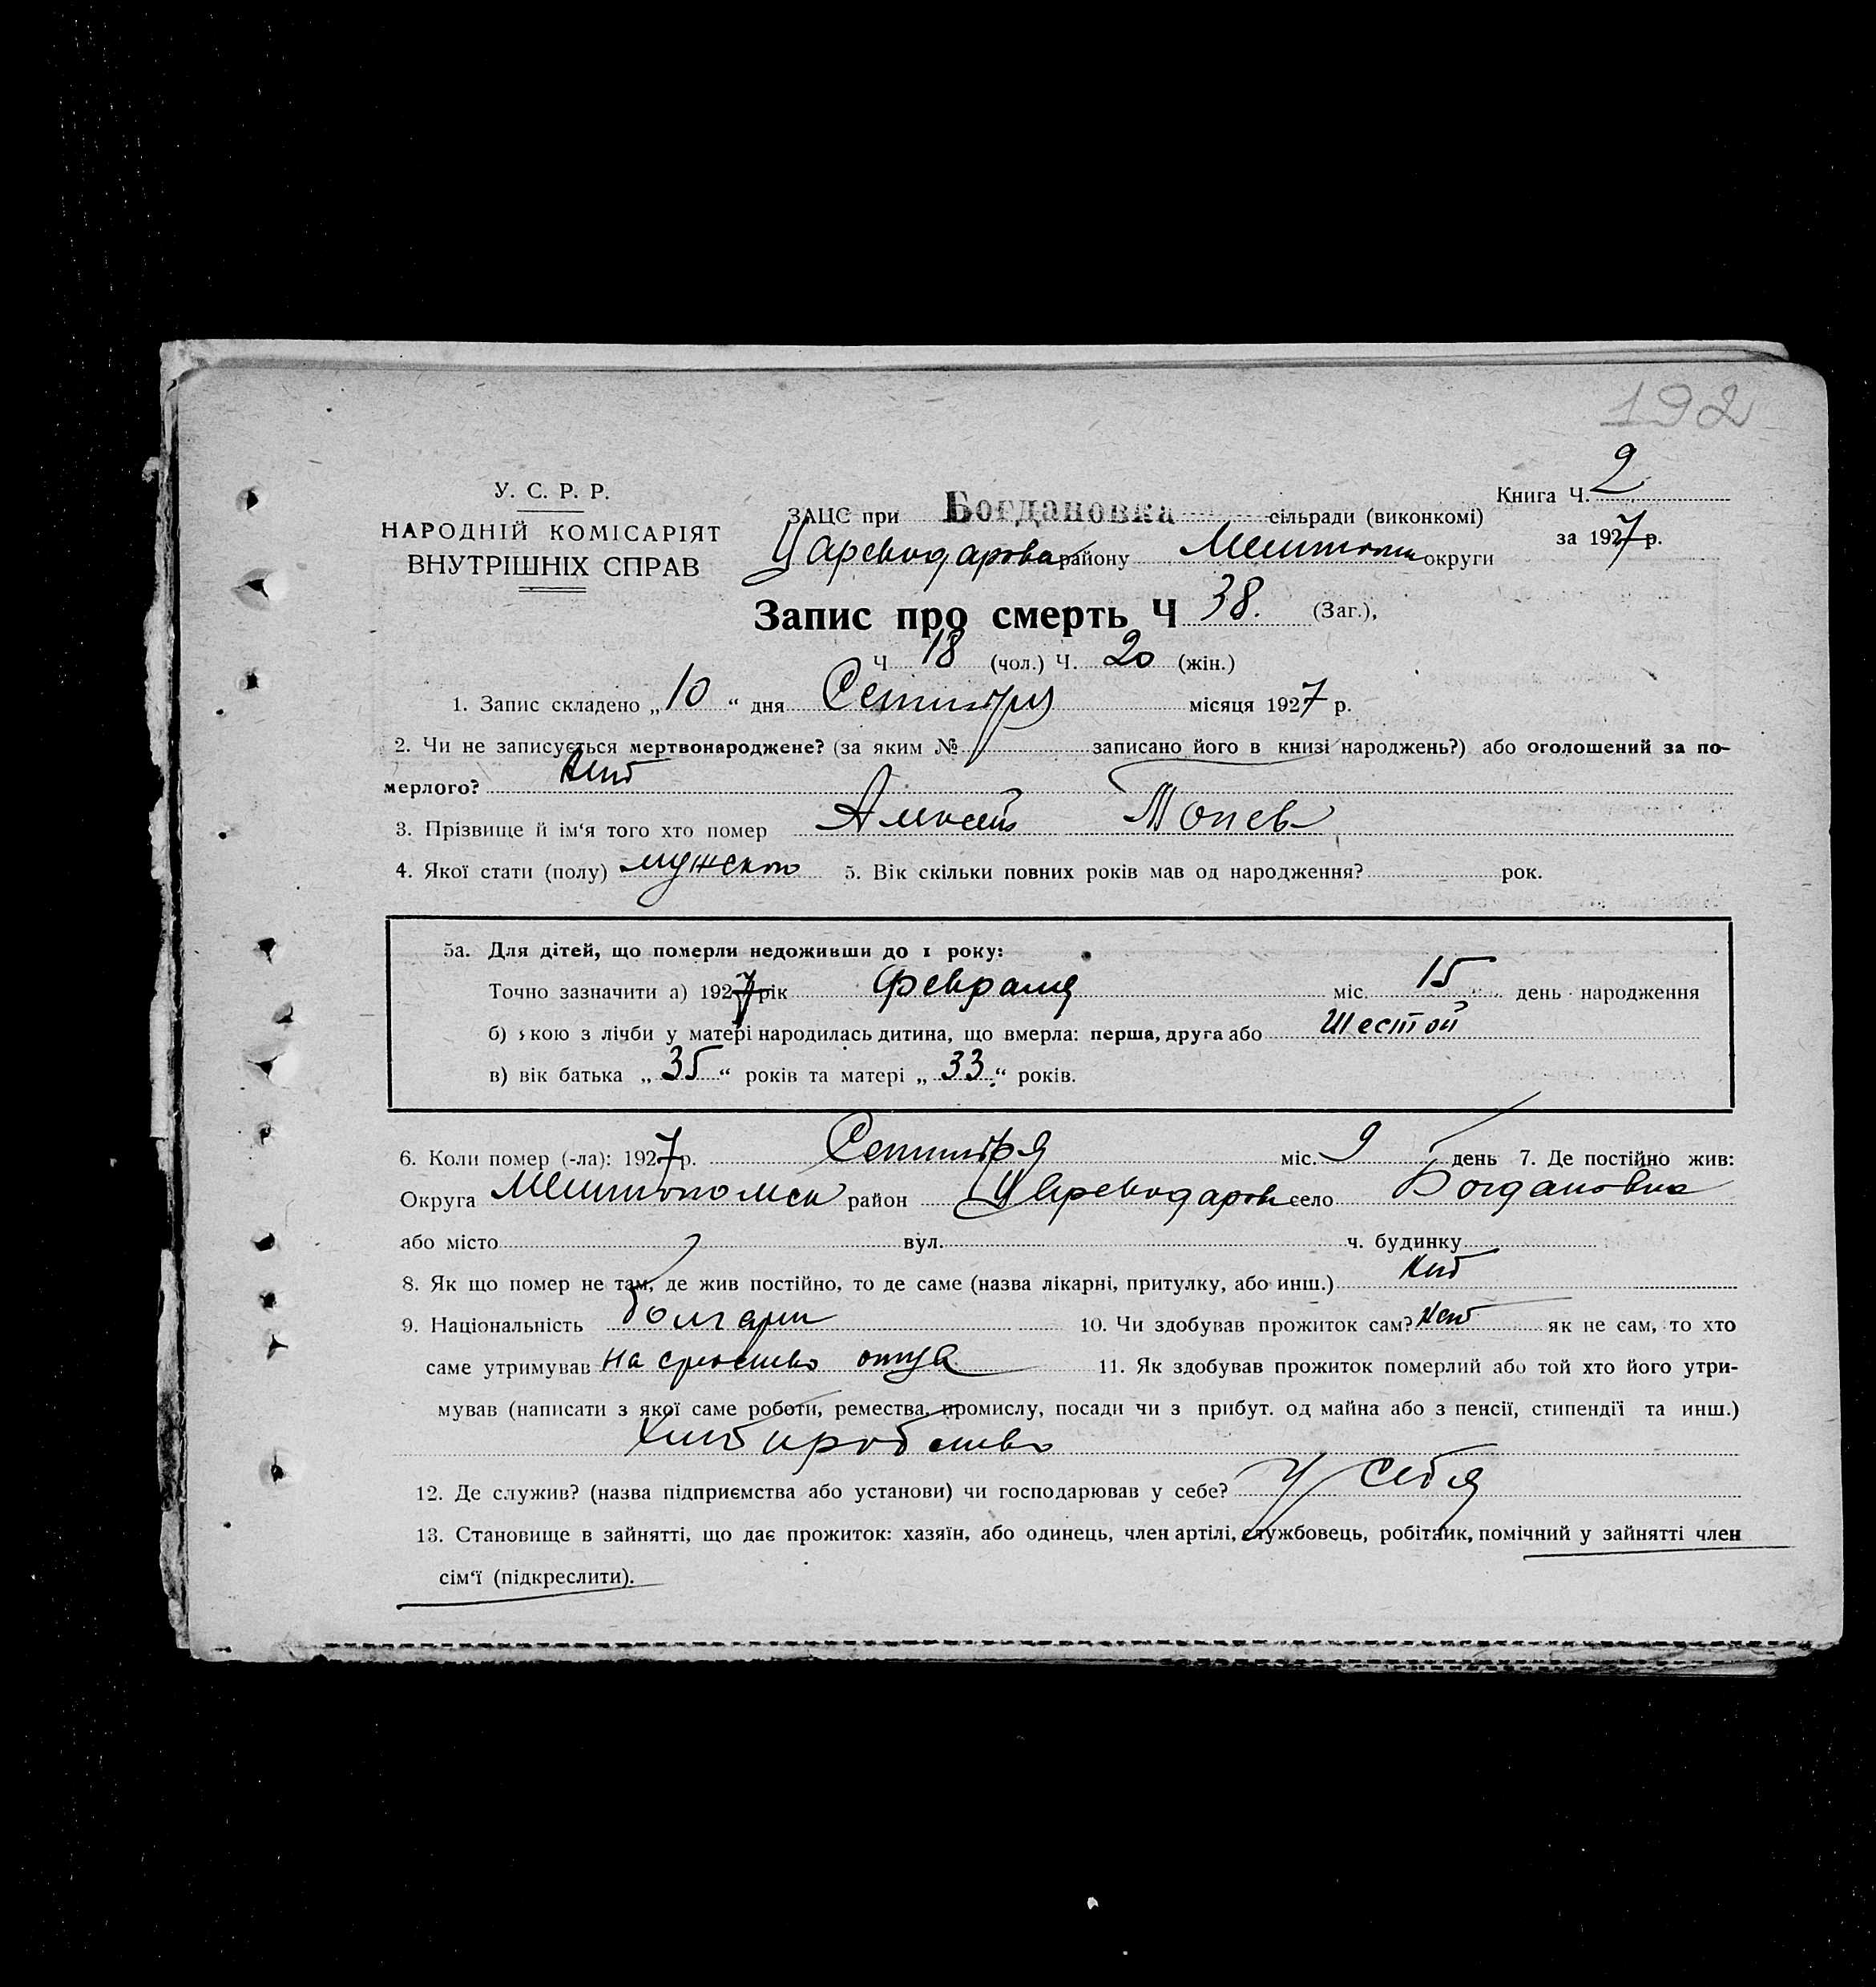 192
Книга Ч. 2
У. С. Р. Р.
ЗАЦС при Богдановка сільради (виконкомі)
НАРОДНІЙ КОМІСАРІЯТ
за 1927 р.
ВНУТРІШНІХ СПРАВ
району округи
Запис про смерть Ч 38. (Заг.),
Ч 18 (чол.) Ч. 20 (жін.)
1. Запис складено „ 10 “ дня Сентября місяця 1927 р.
2. Чи не записується мертвонароджене? (за яким № записано його в книзі народжень?) або оголошений за по-
мерлого? Нет
3. Прізвище й ім‘я того хто помер Алексей
4. Якої стати (полу) мужского 5. Вік скільки повних років мав од народження? рок.
5а. Для дітей, що померли недоживши до 1 року:
Точно зазначити а) 1927 рік Февраля міс. 15 день народження
б) кою з лічби у матері народилась дитина, що вмерла: перша, друга або Шестой
в) вік батька „ 35 “ років та матері „ 33. “ років.
6. Коли помер (-ла): 1927 р. Сентября міс. 9 день 7. Де постійно жив:
Округа район село Богдановка
або місто вул. ч. будинку
8. Як що помер не там, де жив постійно, то де саме (назва лікарні, притулку, або инш.) Нет
9. Національність болгарин 10. Чи здобував прожиток сам? Нет як не сам, то хто
саме утримував на отца 11. Як здобував прожиток померлий або той хто його утри-
мував (написати з якої саме роботи, ремества, промислу, посади чи з прибут. од майна або з пенсії, стипендії та инш.)
12. Де служив? (назва підприємства або установи) чи господарював у себе? У себя
13. Становище в зайнятті, що дає прожиток: хазяїн, або одинець, член артілі, службовець, робітник, помічний у зайнятті член
сім‘ї (підкреслити).